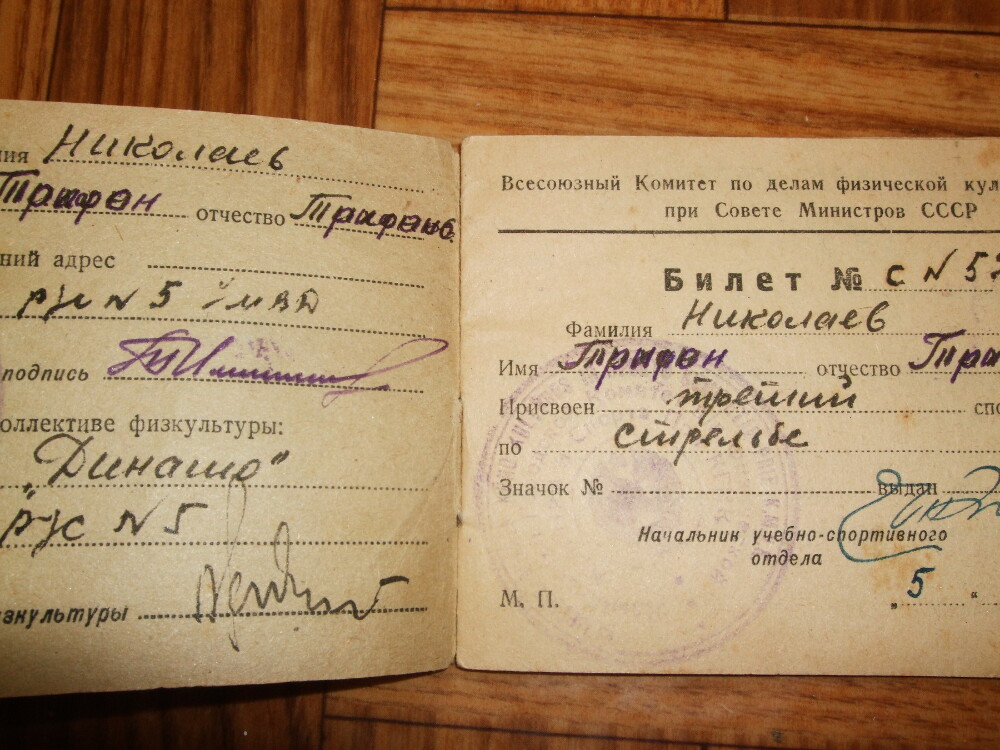 ния Николаев
Трифон отчество Трифонов.
ний адрес
подпись
оллективе физкультуры:
„Динамо"
рус № 5
изкультуры
Всесоюзный Комитет по делам физической кул
при Совете Министров СССР
Билет № С N 57
Фамилия Николаев
Имя Трифон отчество Три
Присвоен третий спо
по стрельбе
Значок № выдан
Начальник учебно-спортивного
отдела
М. П. „ 5 "